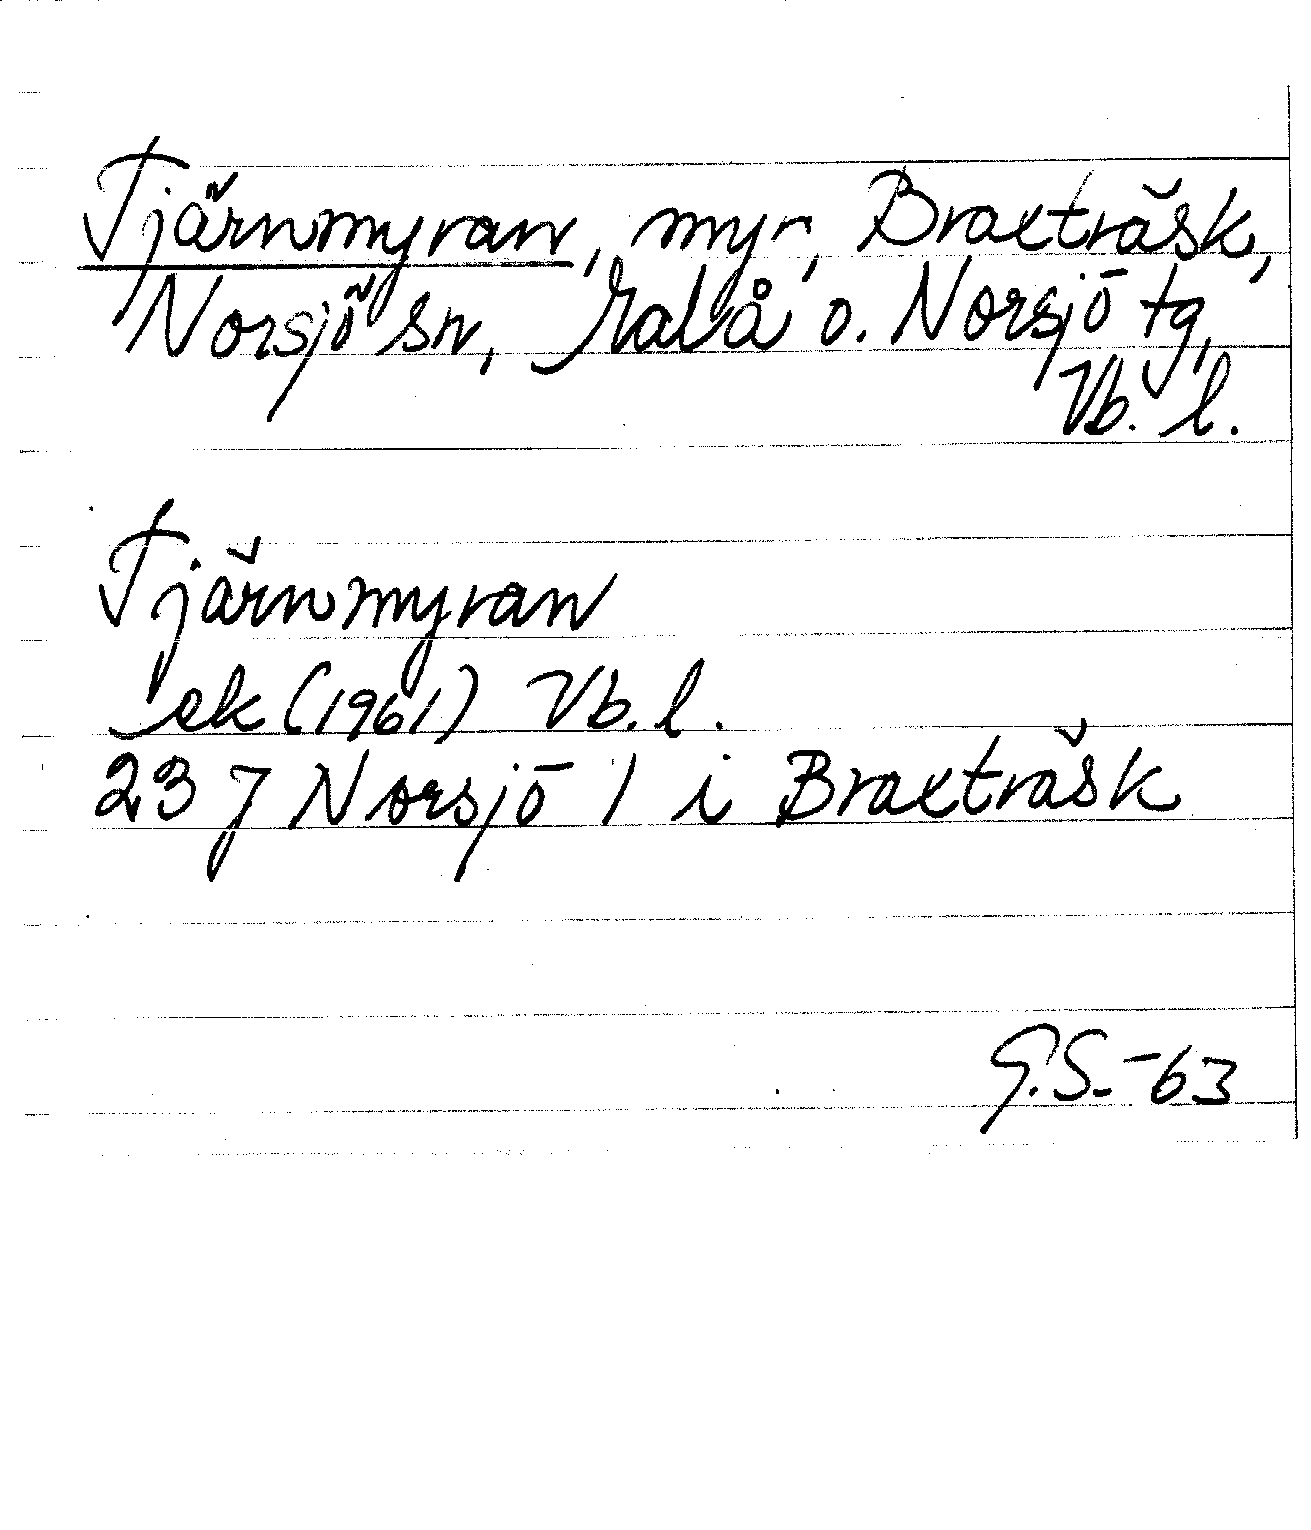 Tjärnmyran, myr, Braxträsk,
Norsjö sn, Malå o. Norsjö tg,
Vb. l.
Tjärnmyran
ek (1961) Vb. l.
23 J Norsjö 1 i Braxträsk
G.S.-63